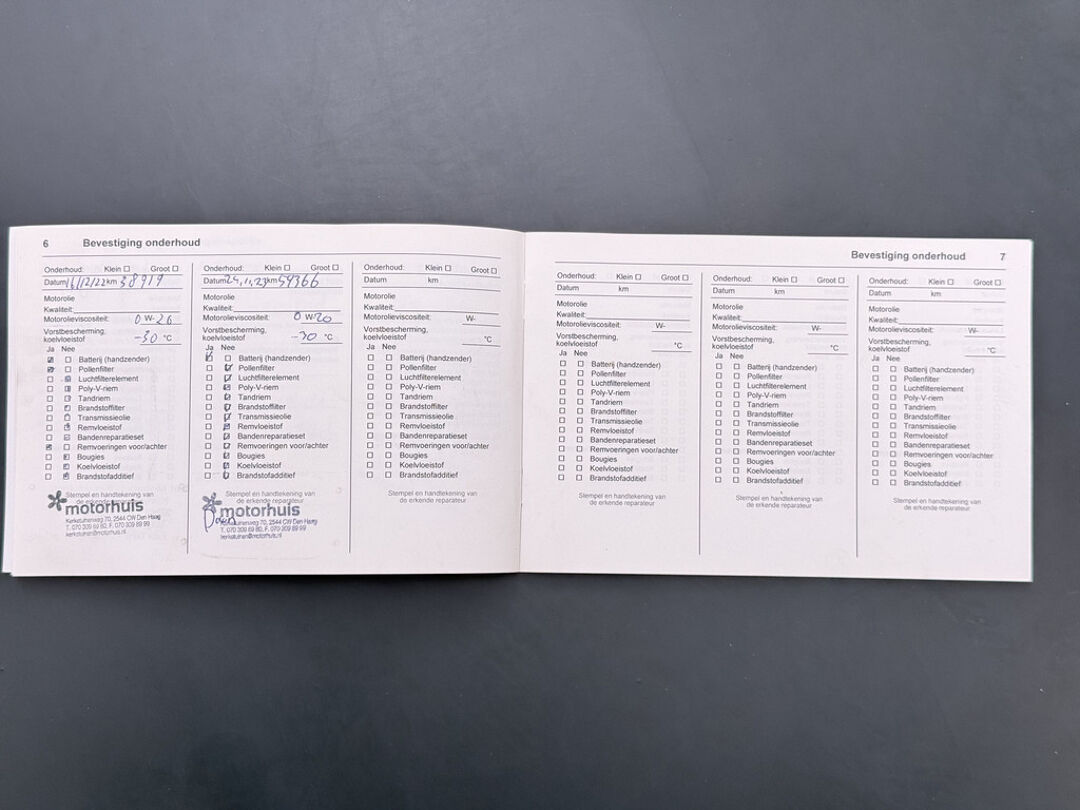 6 Bevestiging onderhoud
Onderhoud: Klein Groot
Datum 16/12/22 km 38919
Motorolie
Kwaliteit:
Motorolieviscositeit: 0 W-20
Vorstbescherming,
koelvloeistof -30 °C
Ja Nee
Batterij (handzender)
Pollenfilter
Luchtfilterelement
Poly-V-riem
Tandriem
Brandstoffilter
Transmissieolie
Remvloeistof
Bandenreparatieset
Remvoeringen voor/achter
Bougies
Koelvloeistof
Brandstofadditief
Stempel en handtekening van
de erkende reparateur
motorhuis
Kerketuinenweg 70, 2544 CW Den Haag
T. 070 309 69 80, F. 070 309 89 99
kerketuinen@motorhuis.nl
Onderhoud: Klein Groot
Datum 24,11,23 km 54366
Motorolie
Kwaliteit:
Motorolieviscositeit: 0 W-20
Vorstbescherming,
koelvloeistof -30 °C
Ja Nee
Batterij (handzender)
Pollenfilter
Luchtfilterelement
Poly-V-riem
Tandriem
Brandstoffilter
Transmissieolie
Remvloeistof
Bandenreparatieset
Remvoeringen voor/achter
Bougies
Koelvloeistof
Brandstofadditief
Stempel en handtekening van
de erkende reparateur
motorhuis
Kerketuinenweg 70, 2544 CW Den Haag
T. 070 309 69 80, F. 070 309 89 99
kerketuinen@motorhuis.nl
Onderhoud: Klein Groot
Datum km
Motorolie
Kwaliteit:
Motorolieviscositeit: W-
Vorstbescherming,
koelvloeistof °C
Ja Nee
Batterij (handzender)
Pollenfilter
Luchtfilterelement
Poly-V-riem
Tandriem
Brandstoffilter
Transmissieolie
Remvloeistof
Bandenreparatieset
Remvoeringen voor/achter
Bougies
Koelvloeistof
Brandstofadditief
Stempel en handtekening van
de erkende reparateur
Bevestiging onderhoud 7
Onderhoud: Klein Groot
Datum km
Motorolie
Kwaliteit:
Motorolieviscositeit: W-
Vorstbescherming,
koelvloeistof °C
Ja Nee
Batterij (handzender)
Pollenfilter
Luchtfilterelement
Poly-V-riem
Tandriem
Brandstoffilter
Transmissieolie
Remvloeistof
Bandenreparatieset
Remvoeringen voor/achter
Bougies
Koelvloeistof
Brandstofadditief
Stempel en handtekening van
de erkende reparateur
Onderhoud: Klein Groot
Datum km
Motorolie
Kwaliteit:
Motorolieviscositeit: W-
Vorstbescherming,
koelvloeistof °C
Ja Nee
Batterij (handzender)
Pollenfilter
Luchtfilterelement
Poly-V-riem
Tandriem
Brandstoffilter
Transmissieolie
Remvloeistof
Bandenreparatieset
Remvoeringen voor/achter
Bougies
Koelvloeistof
Brandstofadditief
Stempel en handtekening van
de erkende reparateur
Onderhoud: Klein Groot
Datum km
Motorolie
Kwaliteit:
Motorolieviscositeit: W-
Vorstbescherming,
koelvloeistof °C
Ja Nee
Batterij (handzender)
Pollenfilter
Luchtfilterelement
Poly-V-riem
Tandriem
Brandstoffilter
Transmissieolie
Remvloeistof
Bandenreparatieset
Remvoeringen voor/achter
Bougies
Koelvloeistof
Brandstofadditief
Stempel en handtekening van
de erkende reparateur